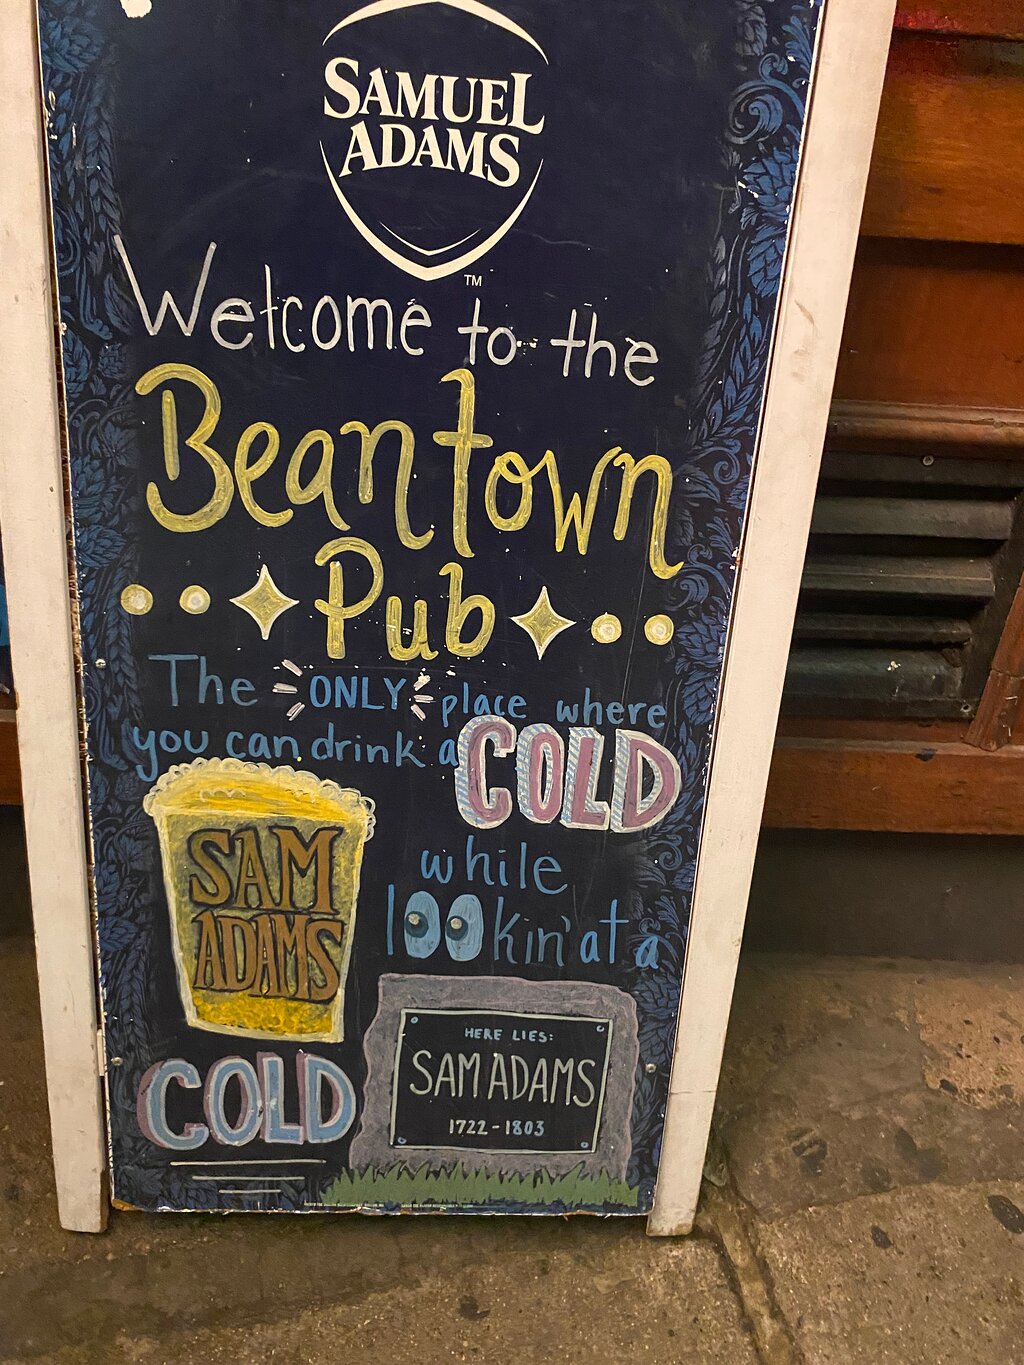 SAMUEL
ADAMS
TM
Welcome to the
Beantown
Pub
The ONLY place where
you can drink a COLD
SAM
ADAMS
while
lookin' at a
COLD
HERE LIES:
SAM ADAMS
1722-1803